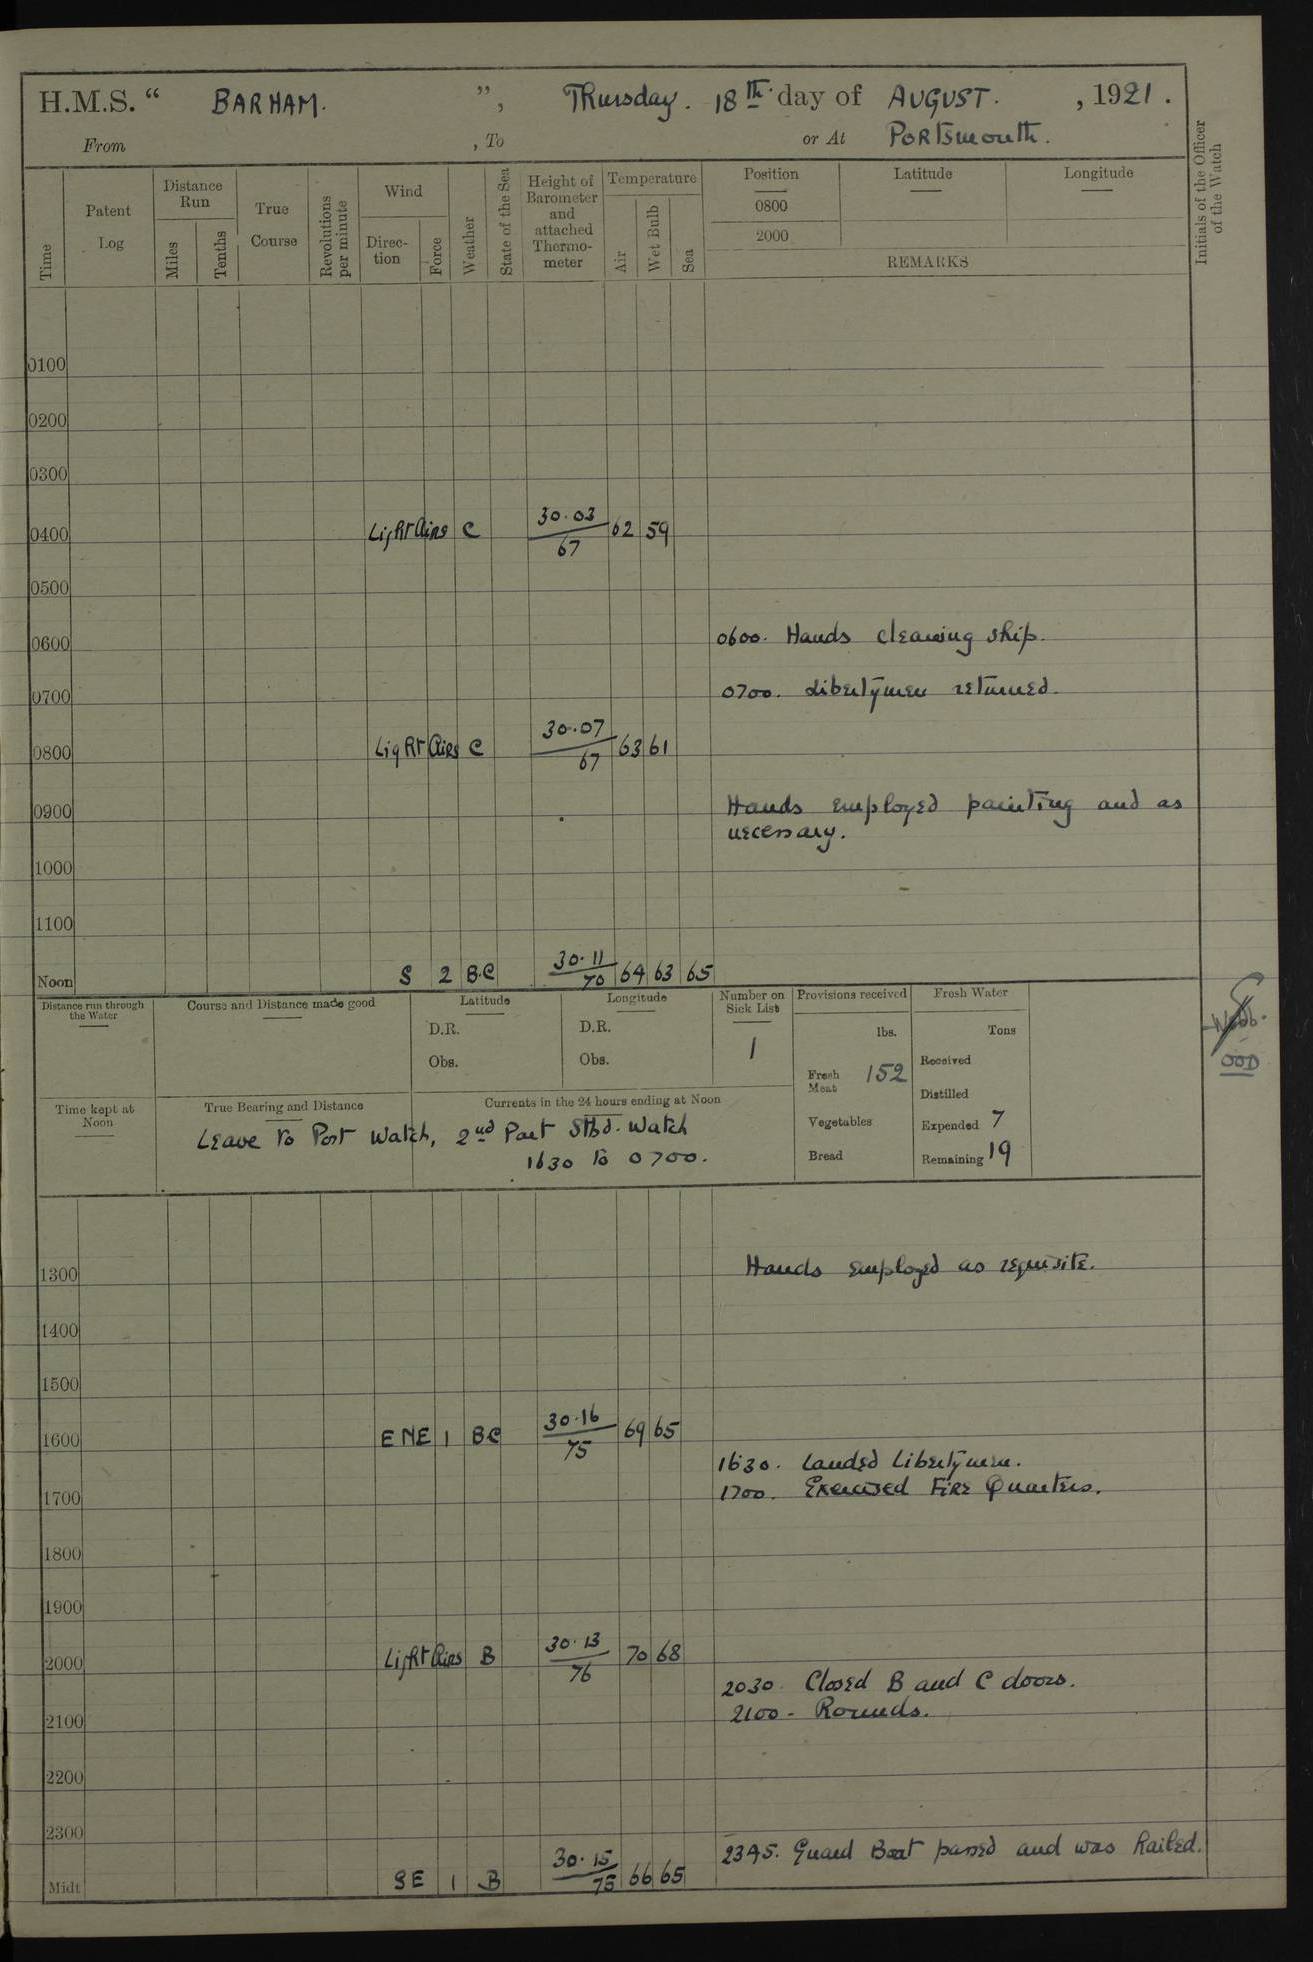 H.M.S. “ BARHAM. ”, Thursday. 18th. day of AUGUST. , 1921.
From , To or At Portsmouth.
Time
Patent Log
Distance Run
Miles
Tenths
True Course
Revolutions per minute
Wind
Direc-tion
Force
Weather
State of the Sea
Height of Barometer and attached Thermo-meter
Temperature
Air
Wet Bulb
Sea
Position Latitude Longitude
0800
2000
REMARKS
Initials of the Officer of the Watch
0100
0200
0300
0400 Light Airs C 30.03/67 62 59
0500
0600 0600. Hands cleaning ship.
0700 0700. Libertymen returned.
0800 Light Airs C 30.07/67 63 61
0900 Hands employed painting and as
necessary.
1000
1100
Noon S 2 B.C 30.11/70 64 63 65
Distance run through the Water
Course and Distance made good
Latitude
D.R.
Obs.
Longitude
D.R.
Obs.
Number on Sick List
1
Provisions received
lbs.
Fresh Meat 152
Vegetables
Bread
Fresh Water
Tons
Received
Distilled
Expended 7
Remaining 19
Webb.
OOD
Time kept at Noon
True Bearing and Distance
Currents in the 24 hours ending at Noon
Leave to Port Watch, 2nd Part Stbd. Watch
1630 to 0700.
1300 Hands employed as requisite.
1400
1500
1600 ENE 1 BC 30.16/75 69 65
1630. Landed Libertymen.
1700 1700. Exercised Fire Quarters.
1800
1900
2000 Light Airs B 30.13/76 70 68
2030. Closed B and C doors.
2100 2100 - Rounds.
2200
2300
2345. Guard Boat passed and was hailed.
Midt SE 1 B 30.15/75 66 65